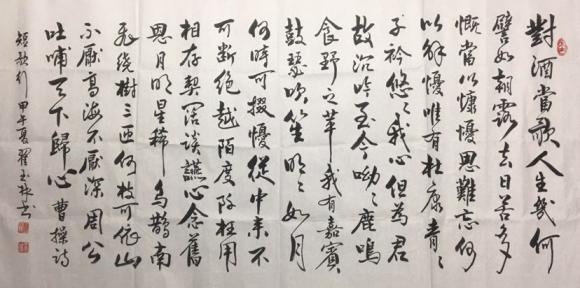 對酒當歌人生幾何
譬如朝露去日苦多
慨當以慷憂思難忘何
以解憂唯有杜康青〻
子衿悠〻我心但為君
故沉吟至今呦〻鹿鳴
食野之苹我有嘉賓
鼓瑟吹笙明〻如月
何時可掇憂從中來不
可斷絕越陌度阡枉用
相存契闊談讌心念舊
恩月明星稀烏鵲南
飛繞樹三匝何枝可依山
不厭高海不厭深周公
吐哺天下歸心曹操詩
短歌行甲午夏翟玉